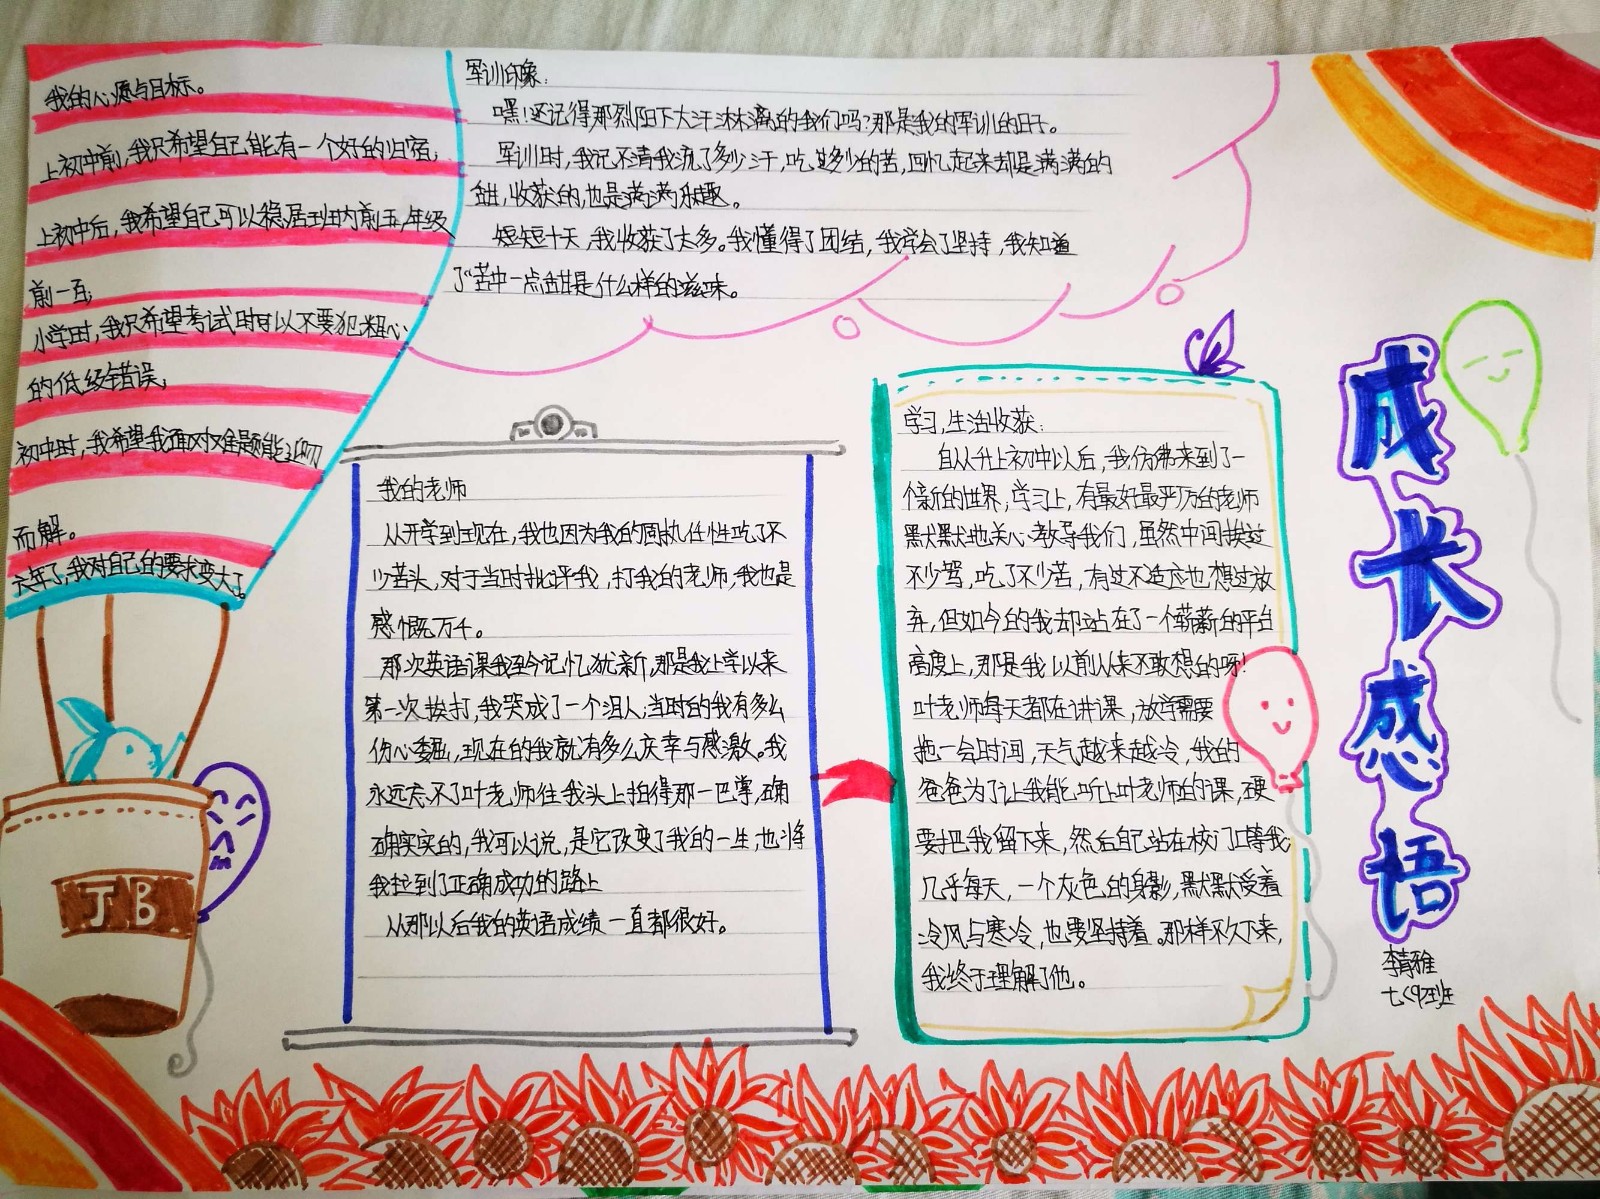 我的心愿与目标。
上初中前,我只希望自己能有一个好的归宿;
上初中后,我希望自己可以稳居班内前五,年级
前一百;
小学时,我只希望考试时可以不要犯粗心
的低级错误;
初中时,我希望我面对难题能迎刃
而解。
长年了,我对自己的要求变大了。
军训印象:
嘿!还记得那烈阳下大汗淋漓的我们吗?那是我的军训的日子。
军训时,我记不清我流了多少汗,吃过多少的苦,回忆起来却是满满的
甜,收获的,也是满满乐趣。
短短十天,我收获了太多。我懂得了团结,我学会了坚持,我知道
了“苦中一点甜”是什么样的滋味。
我的老师
从开学到现在,我也因为我的固执任性吃了不
少苦头,对于当时批评我,打我的老师,我也是
感慨万千。
那次英语课我至今记忆犹新,那是我上学以来
第一次挨打,我哭成了一个泪人,当时的我有多么
伤心委屈,现在的我就有多么庆幸与感激。我
永远忘不了叶老师往我头上拍得那一巴掌,确
确实实的,我可以说,是它改变了我的一生,也将
我拉到了正确成功的路上
从那以后我的英语成绩一直都很好。
学习,生活收获:
自从升上初中以后,我仿佛来到了一
个新的世界,学习上,有最好最严厉的老师
默默默地关心教导我们,虽然中间挨过
不少骂,吃了不少苦,有过不适应也想过放
弃,但如今的我却站在了一个崭新的平台
高度上,那是我以前从来不敢想的呀!
叶老师每天都在讲课,放学需要
拖一会时间,天气越来越冷,我的
爸爸为了让我能听上叶老师的课,硬
要把我留下来,然后自己站在校门口等我;
几乎每天,一个灰色的身影,默默受着
冷风与寒冷,也要坚持着。那样不久下来,
我终于理解了他。
成长感悟
李菁雅
七<9>班
JB